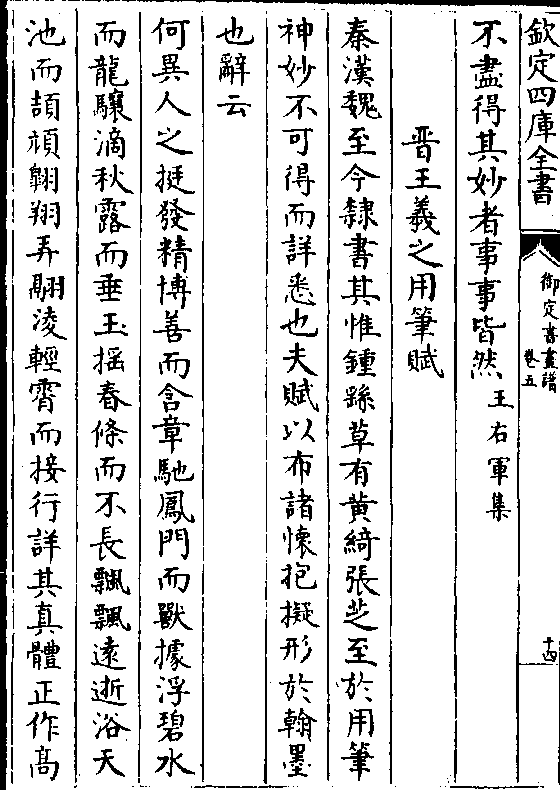 欽定四庫全書
御定書畫譜
卷五
十四
不盡得其妙者事事皆然王右軍集
晉王羲之用筆賦
秦漢魏至今隸書其惟鍾繇草有黄綺張芝至於用筆
神妙不可得而詳悉也夫賦以布諸懷抱擬形於翰墨
也辭云
何異人之挺發精博善而含章馳鳳門而獸據浮碧水
而龍驤滴秋露而垂玉揺春條而不長飄飄逺逝浴天
池而頡頏翺翔弄翮淩輕霄而接行詳其真體正作髙